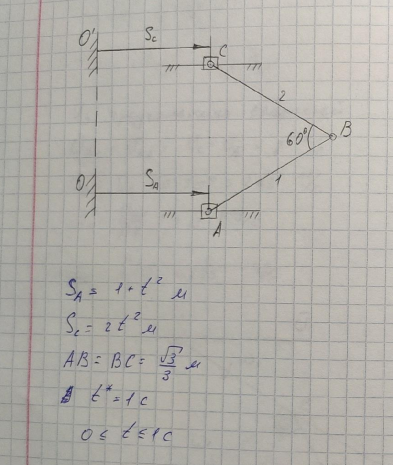 O' S_C C
2
60° B
O S_A 1
A
S_A = 1 + t² м
S_C = 2t² м
AB = BC = √3/3 м
t* = 1 с
0 ≤ t ≤ 1 с